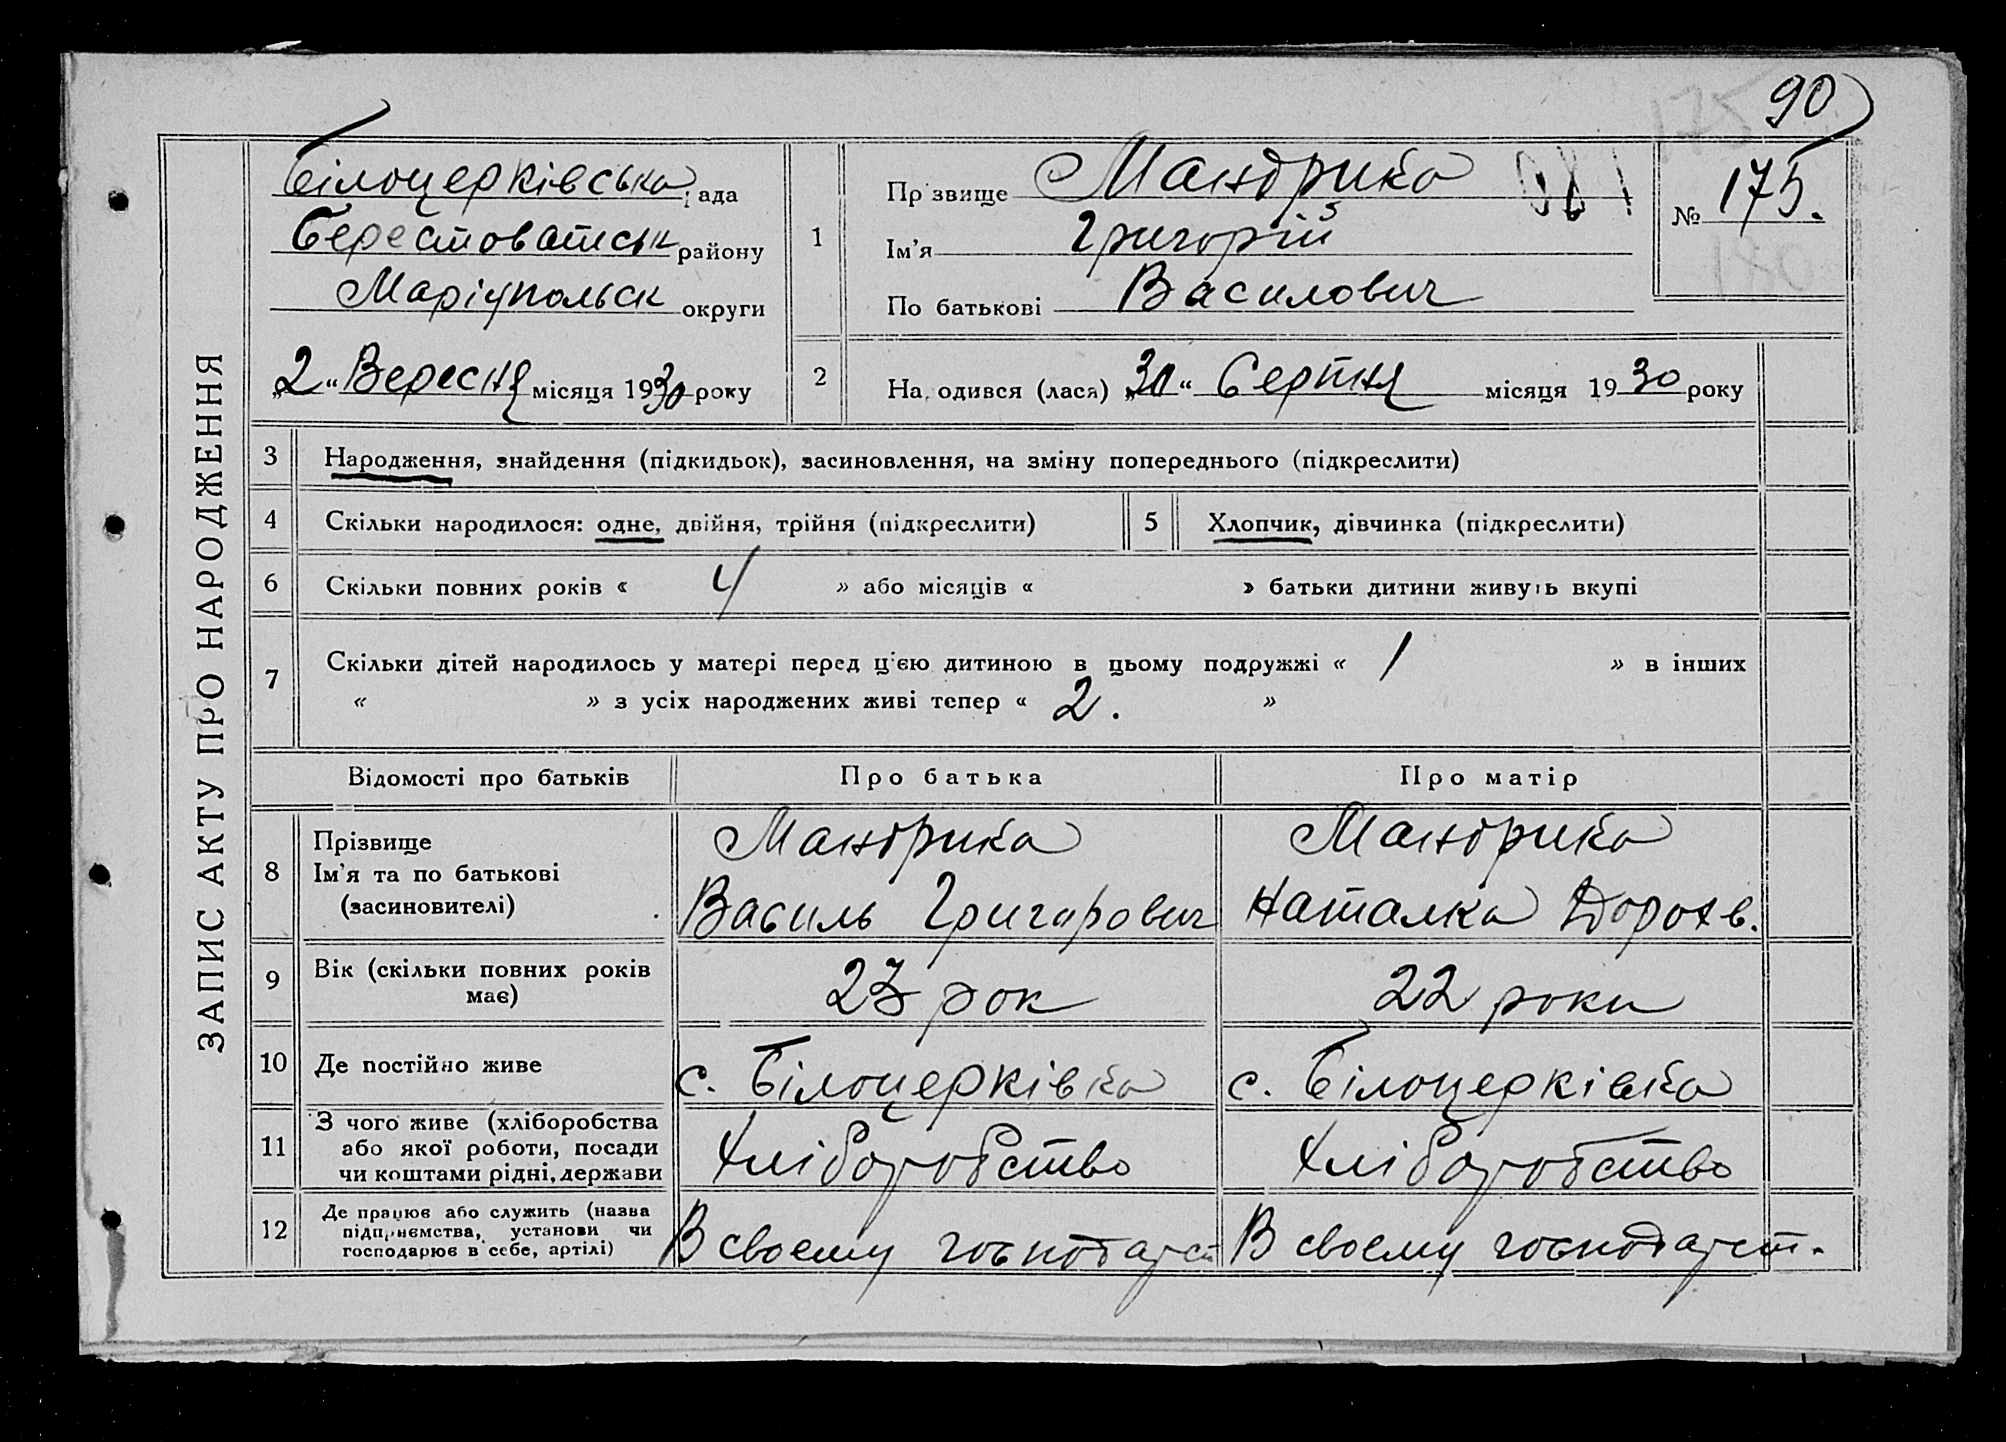 90
ЗАПИС АКТУ ПРО НАРОДЖЕННЯ
Білоцерківська рада
Берестоватськ району
Маріупольск округи
„2“ Вересня місяця 1930 року
1
Прізвище Мандрика
Ім'я Григорій
По батькові Василович
№ 175.
180
2
Народився (лася) „30“ Серпня місяця 1930 року
3 Народження, знайдення (підкидьок), засиновлення, на зміну попереднього (підкреслити)
4 Скільки народилося: одне, двійня, трійня (підкреслити) 5 Хлопчик, дівчинка (підкреслити)
6 Скільки повних років « 4 » або місяців « » батьки дитини живуть вкупі
7 Скільки дітей народилось у матері перед цією дитиною в цьому подружжі « 1 » в інших
« » з усіх народжених живі тепер « 2. »
Відомості про батьків Про батька Про матір
8 Прізвище
Ім'я та по батькові
(засиновителі)
Мандрика
Василь Григорович
Мандрика
Наталка Дорохв.
9 Вік (скільки повних років
має)
23 рок
22 роки
10 Де постійно живе с. Білоцерківка с. Білоцерківка
11 З чого живе (хліборобства
або якої роботи, посади
чи коштами рідні, держави
Хліборобство
Хліборобство
12 Де працює або служить (назва
підприємства, установи чи
господарює в себе, артілі)
В своему господарст
В своему господарст.